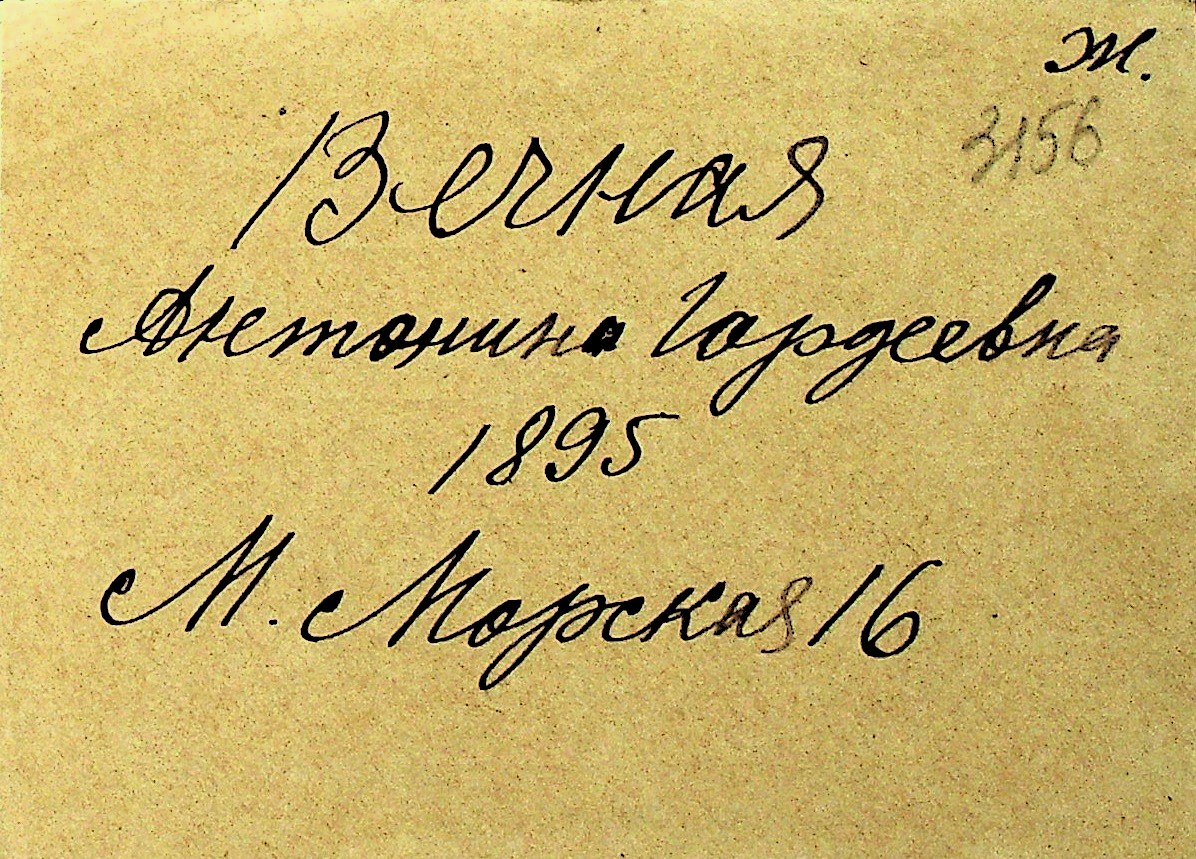 ж.
3156
Вечная
Антонина Гордеевна
1895
М. Морская 16